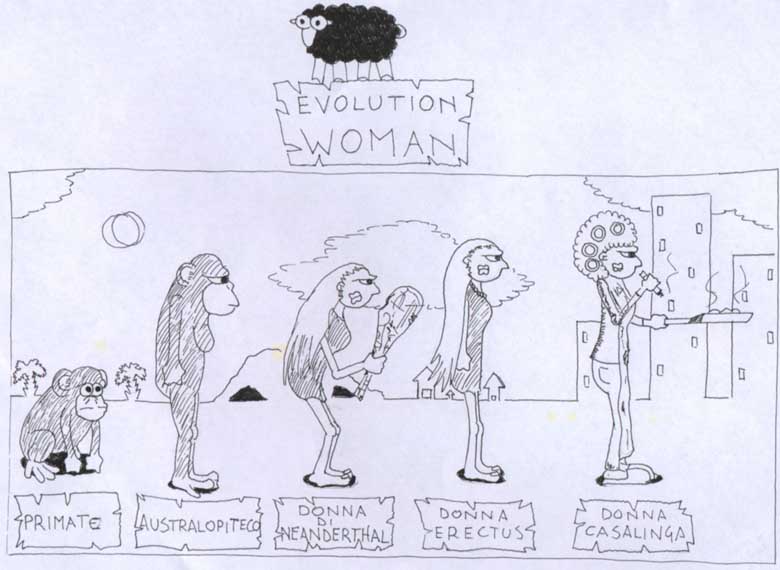 EVOLUTION
WOMAN
PRIMATE
AUSTRALOPITECO
DONNA
DI
NEANDERTHAL
DONNA
ERECTUS
DONNA
CASALINGA